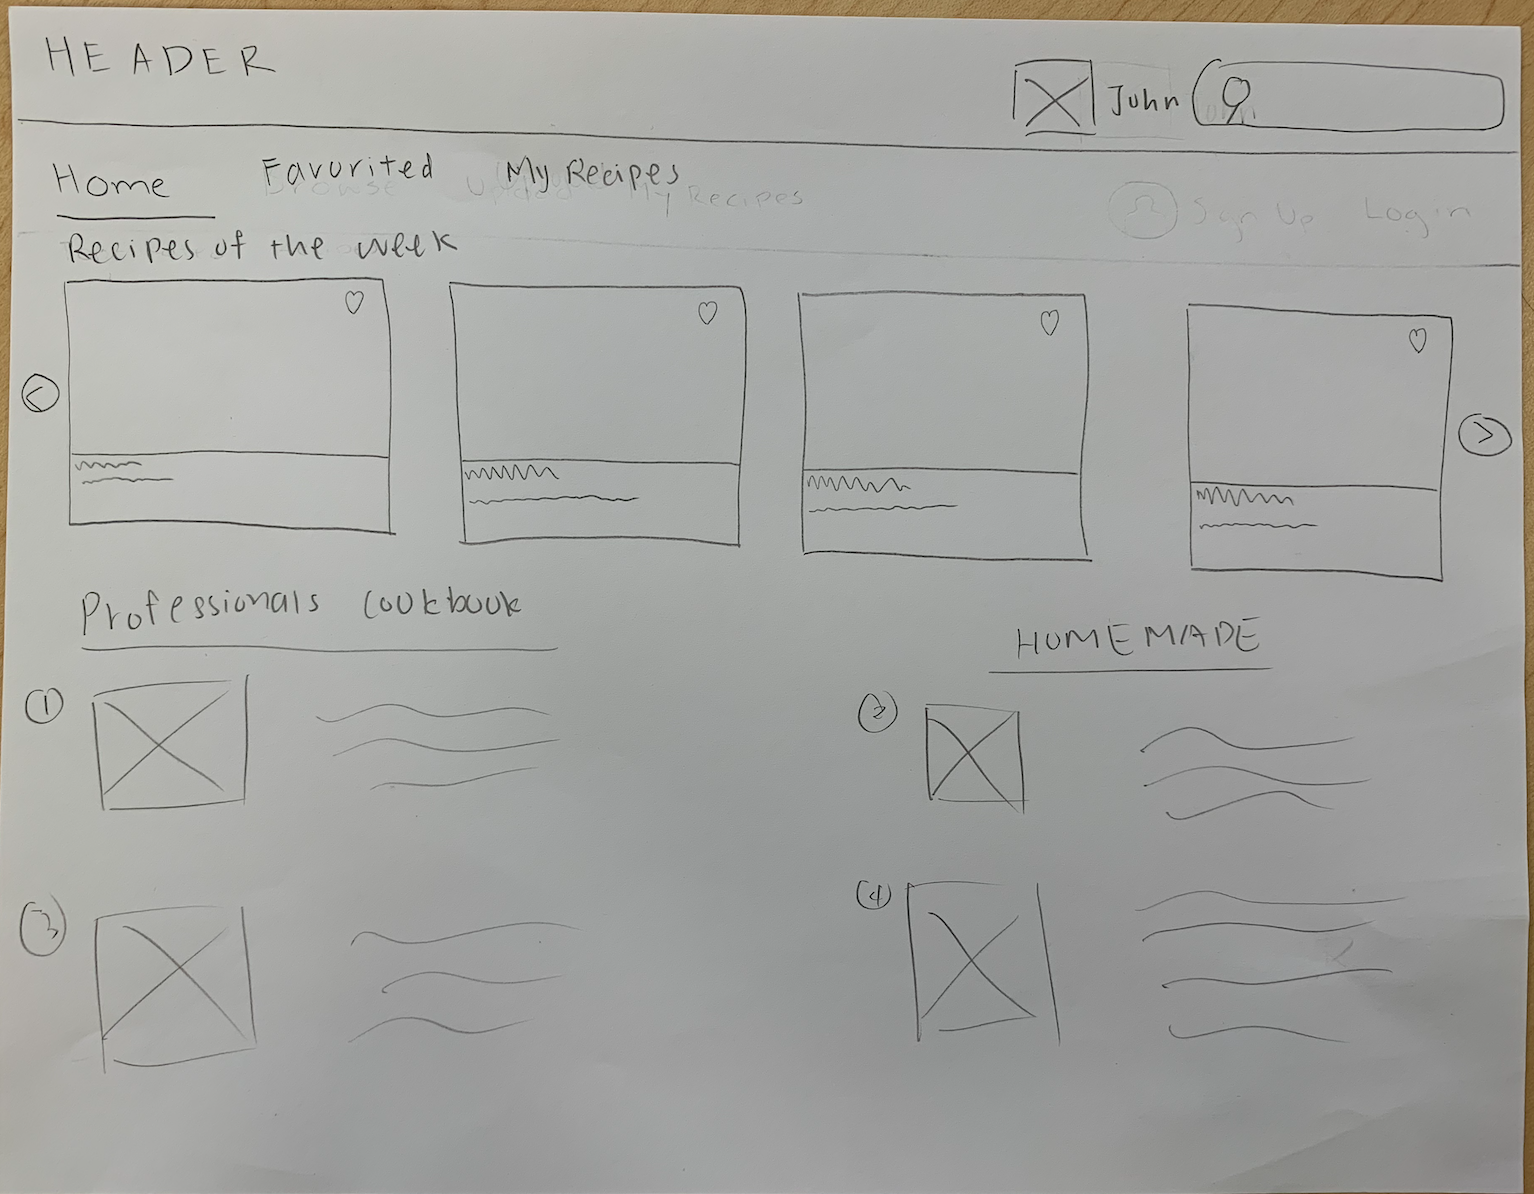 HEADER
John
Home Favorited My Recipes
Browse Upload My Recipes
Sign Up Login
Recipes of the week
<
>
Professionals Cookbook
HOMEMADE
1
2
3
4